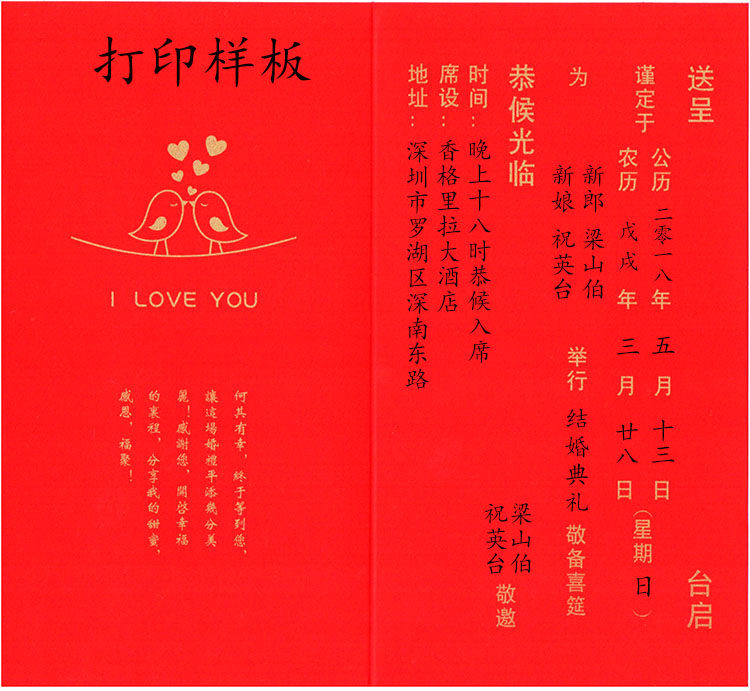 打印样板
I LOVE YOU
何其有幸，終于等到您，
讓這場婚禮平添幾分美
麗！感謝您，開啓幸福
的裏程，分享我的甜蜜，
感恩，福聚！
送呈 台启
谨定于 公历 二零一八年 五月 十三日
农历 戊戌年 三月 廿八日
（星期日）
为
新郎 梁山伯
新娘 祝英台
举行 结婚典礼 敬备喜筵
恭候光临
梁山伯
祝英台
敬邀
时间：晚上十八时恭候入席
席设：香格里拉大酒店
地址：深圳市罗湖区深南东路